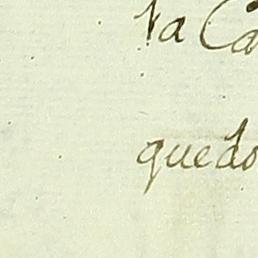 la Ca
quedo